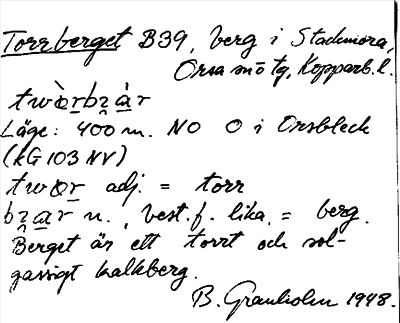 Torrberget B39, berg i Stackmora,
Orsa sn ö tg, Kopparb. l.
twòrbzàr
Läge: 400 m. NO O i Orsbleck
(KG 103 NV)
twor adj. = torr
bzar n., best. f. lika = berg.
Berget är ett torrt och sol-
gassigt kalkberg.
B. Granholm 1948.